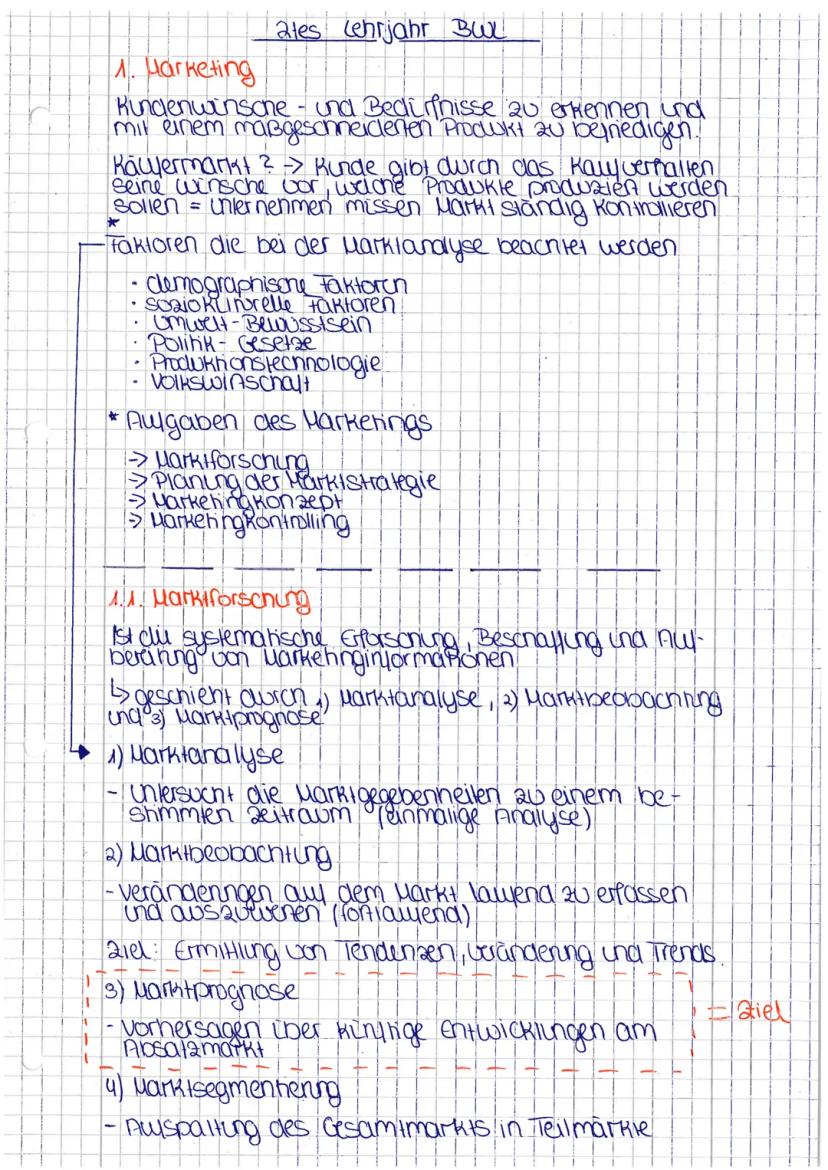 2tes Lehrjahr BWL
1. Marketing
Kundenwünsche - und Bedürfnisse zu erkennen und
mit einem maßgeschneiderten Produkt zu befriedigen.
Käufermarkt? -> Kunde gibt durch das Kaufverhalten
seine wünsche vor, welche Produkte produzien werden
sollen = unternehmen müssen Markt ständig Kontrollieren
*
Faktoren die bei der Marktanalyse beachtet werden
· demographische Faktoren
· soziokulturelle Faktoren
· Umwelt-Bewusstsein
· Politik- Gesetze
· Produktionstechnologie
· Volkswirtschaft
* Aufgaben des Marketings
-> Marktforschung
-> Planung der Marktstrategie
-> Marketingkonzept
-> Marketingkontrolling
1.1. Marktforschung
Ist die systematische Erforschung, Beschaffung und Auf-
bereitung von Marketinginformationen
↳ geschieht durch 1) Marktanalyse, 2) Marktbeobachtung
und 3) Marktprognose
1) Marktanalyse
- untersucht die Marktgegebenheiten zu einem be-
stimmten Zeitraum (einmalige Analyse)
2) Marktbeobachtung
- veränderungen auf dem Markt laufend zu erfassen
und auszuwerten (fortlaufend)
Ziel: Ermittlung von Tendenzen, veränderung und Trends.
3) Marktprognose
= Ziel
- Vorhersagen über künftige Entwicklungen am
Absatzmarkt
4) Marktsegmentierung
- Aufspaltung des Gesamtmarkts in Teilmärkte